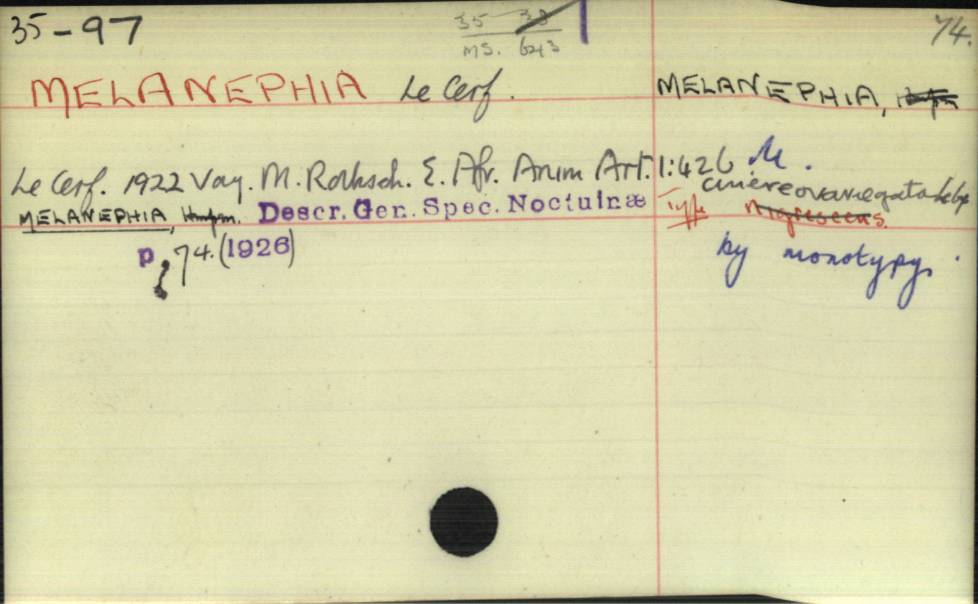 35-97
35 33
MS. 643
74.
MELANEPHIA Le Cerf.
MELANEPHIA, Hmpsn
Le Cerf. 1922 Voy. M. Rothsch. E. Afr. Anim Art. 1:426
cinereovariegata Le Cerf
MELANEPHIA, Hmpsn. Descr. Gen. Spec. Noctuinæ
type nigrescens.
p 74. (1926)
by monotypy.